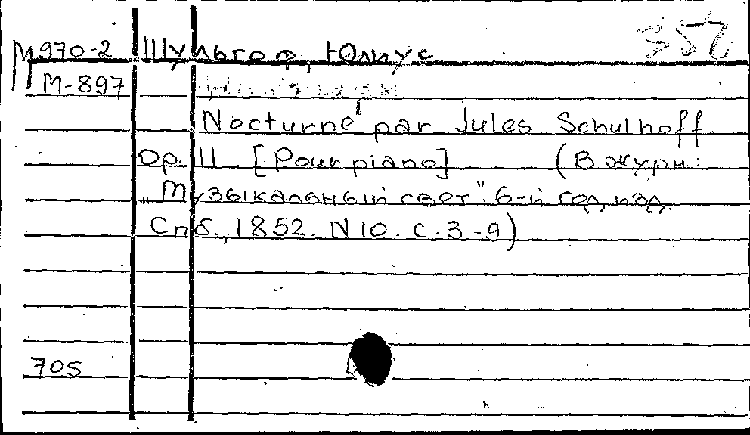 357
М 970-2 Шульгоф, Юлиус
М-897
Nocturne par Jules Schulhoff
Op. 11 [Pour piano] (В журн:
"Музыкальный свет" 6-й год изд.
Спб., 1852. N 10. С. 3-9)
705